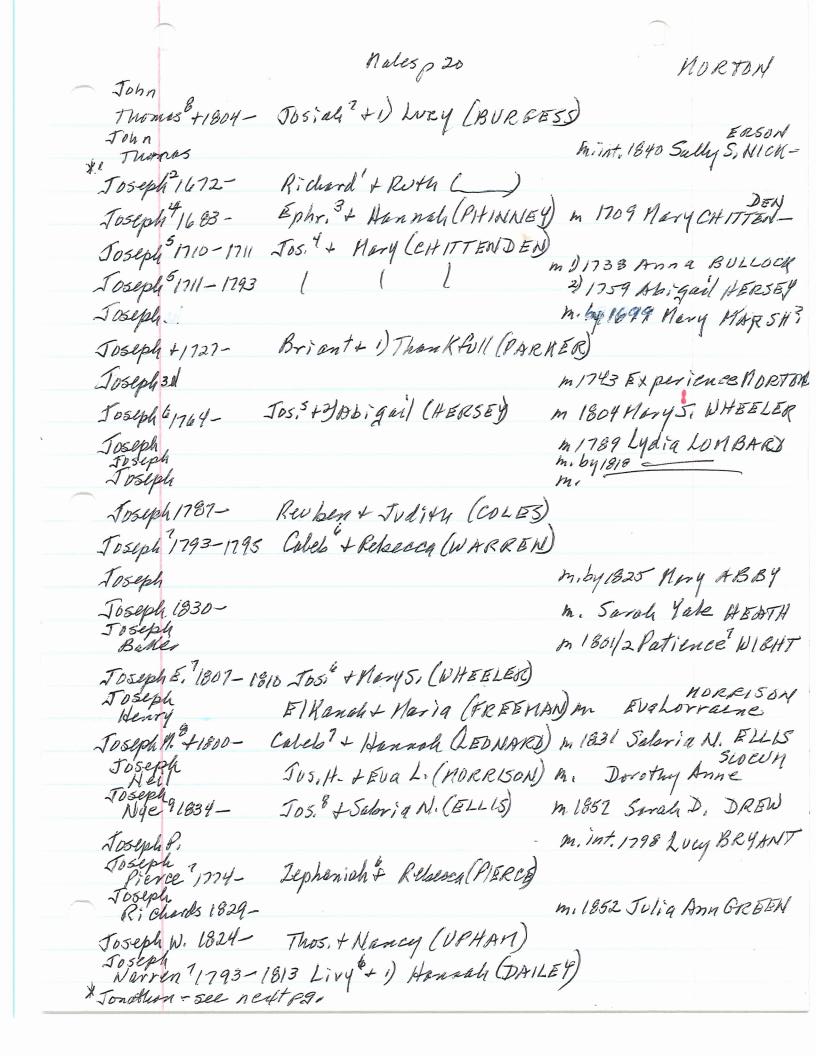 Males p 20 MORTON
John
Thomas⁸ +1804- Josiah⁷ + 1) Lucy (BURGESS)
John ERSON
Thomas m.int. 1840 Sally S. NICK-
Joseph² 1672- Richard¹ + Ruth (___)
DEN
Joseph⁴ 1683- Ephr.³ + Hannah (PHINNEY) m 1709 Mary CHITTEN-
Joseph⁵ 1710-1711 Jos.⁴ + Mary (CHITTENDEN)
m 1) 1733 Anna BULLOCK
Joseph⁵ 1711-1793 2) 1759 Abigail HERSEY
Joseph m. by 1699 Mary MARSH?
Joseph +1727- Briant + 1) Thankfull (PARKER)
Joseph 3d m 1743 Experience MORTON
Joseph⁶ 1764- Jos.⁵ + 2) Abigail (HERSEY) m 1804 Mary S. WHEELER
Joseph m 1789 Lydia LOMBARD
Joseph m. by 1818
Joseph m.
Joseph 1787- Reuben + Judith (COLES)
Joseph⁷ 1793-1795 Caleb⁶ + Rebecca (WARREN)
Joseph m. by 1825 Mary ABBY
Joseph 1830- m. Sarah Yale HEATH
Joseph
Baker m 1801/2 Patience⁷ WIGHT
Joseph E.⁷ 1807-1810 Jos.⁶ + Mary S. (WHEELER)
Joseph MORRISON
Henry Elkanah + Maria (FREEMAN) m Eva Lorraine
Joseph N.⁸ +1800- Caleb⁷ + Hannah (LEONARD) m 1831 Saloria N. ELLIS
Joseph SLOCUM
Neil Jos. H. + Eva L. (MORRISON) m. Dorothy Anne
Joseph
Nye⁹ 1834- Jos.⁸ + Saloria N. (ELLIS) m 1852 Sarah D. DREW
Joseph P. m. int. 1798 Lucy BRYANT
Joseph
Pierce⁷ 1774- Zephaniah⁶ + Rebecca (PIERCE)
Joseph
Richards 1829- m. 1852 Julia Ann GREEN
Joseph W. 1824- Thos. + Nancy (UPHAM)
Joseph
Warren⁷ 1793-1813 Livy⁶ + 1) Hannah (DAILEY)
* Jonathan - see next pg.